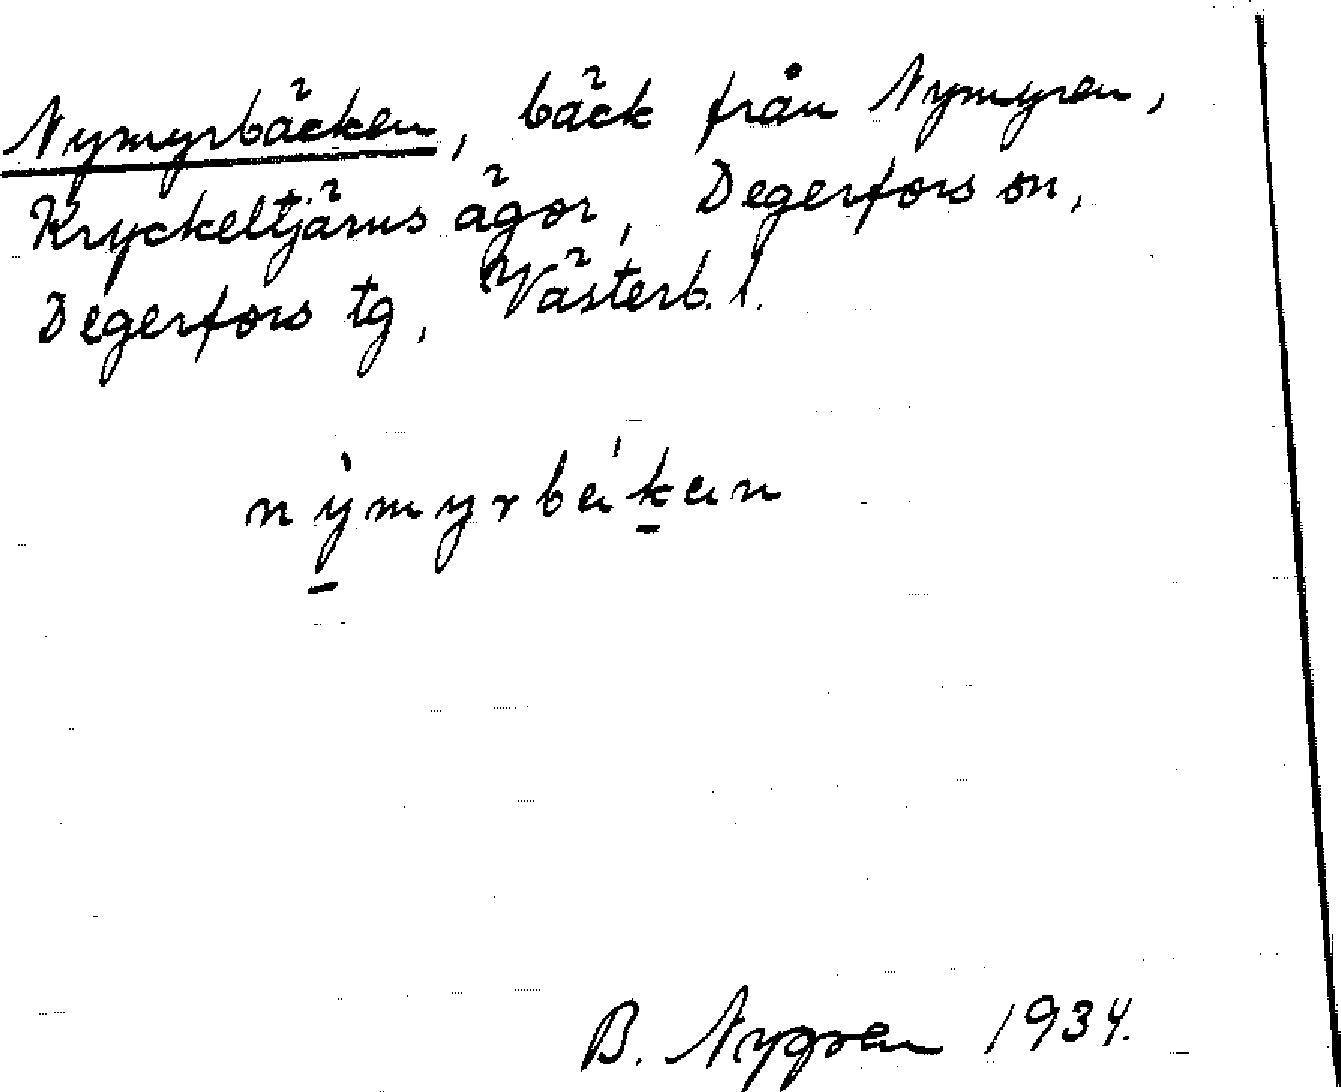 Nymyrbäcken, bäck från Nymyren,
Kryckeltjärns ägor, Degerfors sn,
Degerfors tg, Västerb. l.
B. Nygren 1934.